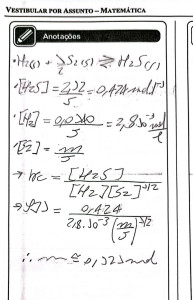 VESTIBULAR POR ASSUNTO – MATEMÁTICA
Anotações
• H2(g) + 1/2 S2(s) ⇌ H2S(s)
[H2S] = 2,12/5 = 0,424 mol l⁻¹
• [H2] = 0,0140/5 = 2,8·10⁻³ mol/l
• [S2] = m/5
→ Kc = [H2S]/[H2][S2]^1/2
= 0,424/2,8·10⁻³ (m/5)^1/2
∴ m ≅ 0,323 mol